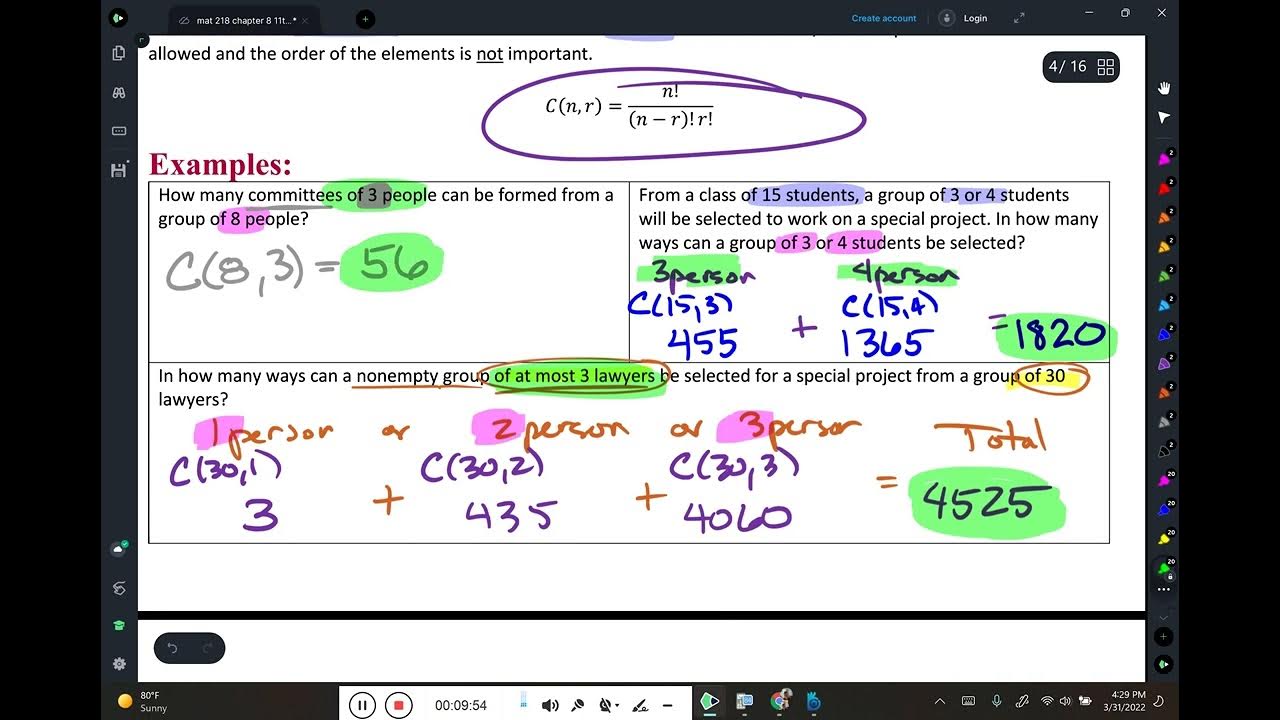 mat 218 chapter 8 11t...*
Create account
Login
allowed and the order of the elements is not important.
4 / 16
C(n, r) = n! / (n − r)! r!
Examples:
How many committees of 3 people can be formed from a
group of 8 people?
C(8,3) = 56
From a class of 15 students, a group of 3 or 4 students
will be selected to work on a special project. In how many
ways can a group of 3 or 4 students be selected?
3person 4person
C(15,3) C(15,4)
455 + 1365 = 1820
In how many ways can a nonempty group of at most 3 lawyers be selected for a special project from a group of 30
lawyers?
1person or 2person or 3person Total
C(30,1) C(30,2) C(30,3)
3 + 435 + 4060 = 4525
80°F
Sunny
00:09:54
4:29 PM
3/31/2022